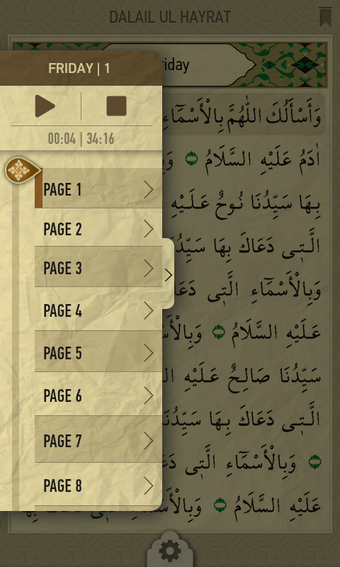 DALAIL UL HAYRAT
FRIDAY | 1
00:04 | 34:16
PAGE 1
PAGE 2
PAGE 3
PAGE 4
PAGE 5
PAGE 6
PAGE 7
PAGE 8
riday
وَأَسْأَلُكَ اللّٰهُمَّ بِالْأَسْمَاءِ
اٰدَمُ عَلَيْهِ السَّلَامُ
بِهَا سَيِّدُنَا نُوحٌ عَلَيْهِ
الَّتِى دَعَاكَ بِهَا سَيِّدُ
وَبِالْأَسْمَاءِ الَّتِى دَعَ
عَلَيْهِ السَّلَامُ وَبِالْأَسْ
سَيِّدُنَا صَالِحٌ عَلَيْهِ ال
الَّتِى دَعَاكَ بِهَا سَيِّدُنَا
وَبِالْأَسْمَاءِ الَّتِى دَ
عَلَيْهِ السَّلَامُ وَبِالْأَسْ